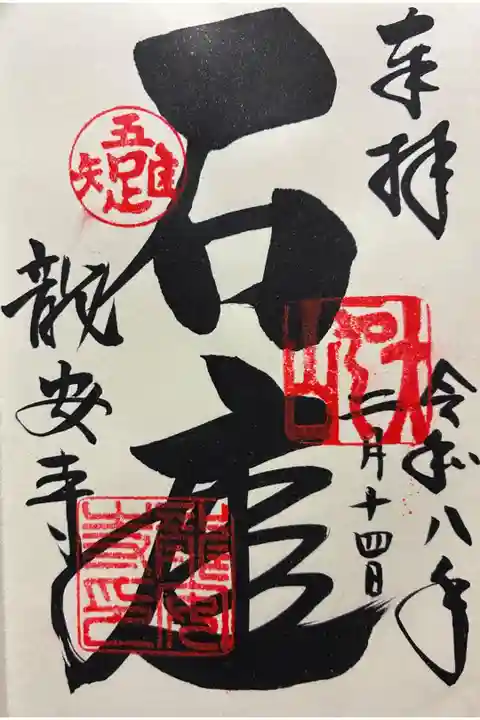 奉拝
令和八年
二月十四日
石庭
龍安寺
吾唯足知
龍安寺印